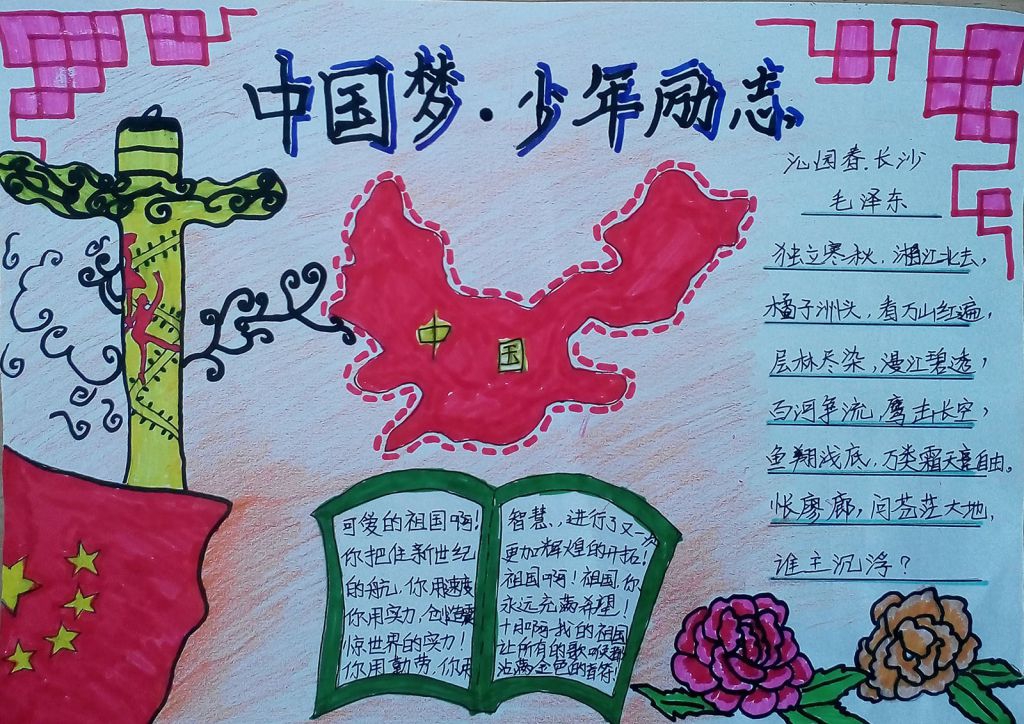 中国梦·少年励志
沁园春.长沙
毛泽东
独立寒秋，湘江北去，
橘子洲头，看万山红遍，
层林尽染，漫江碧透，
百河争流，鹰击长空，
鱼翔浅底，万类霜天竟自由。
怅廖廓，问茫茫大地，
谁主沉浮？
中国
可爱的祖国啊！
你把住新世纪
的航，你用速度
你用实力，创造震
惊世界的实力！
你用勤劳、你用
智慧，进行了又一次
更加辉煌的开拓！
祖国啊！祖国，你
永远充满希望！
十月啊-我的祖国
让所有的歌喉都
沾满金色的音符！